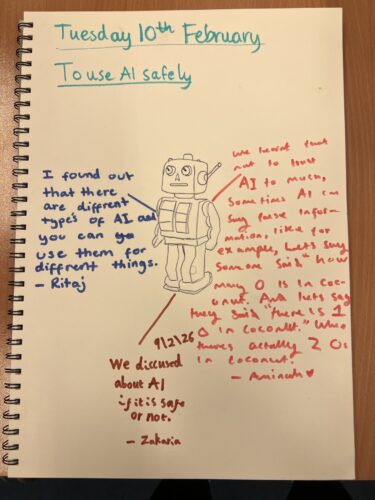 Tuesday 10th February
To use AI safely
I found out
that there
are diffrent
types of AI and
you can
use them for
diffrent things.
- Ritaj
We learnt that
not to trust
AI to much,
Sometimes AI can
Say false infor-
mation, like for
example, Lets say
someone said "how
many O is in coc-
onut. And lets say
they said "there is 1
O in coconut." When
theres actally 2 Os
in coconut.
- Aminah
9/2/26
We discused
about AI
if it is safe
or not.
- Zakaria